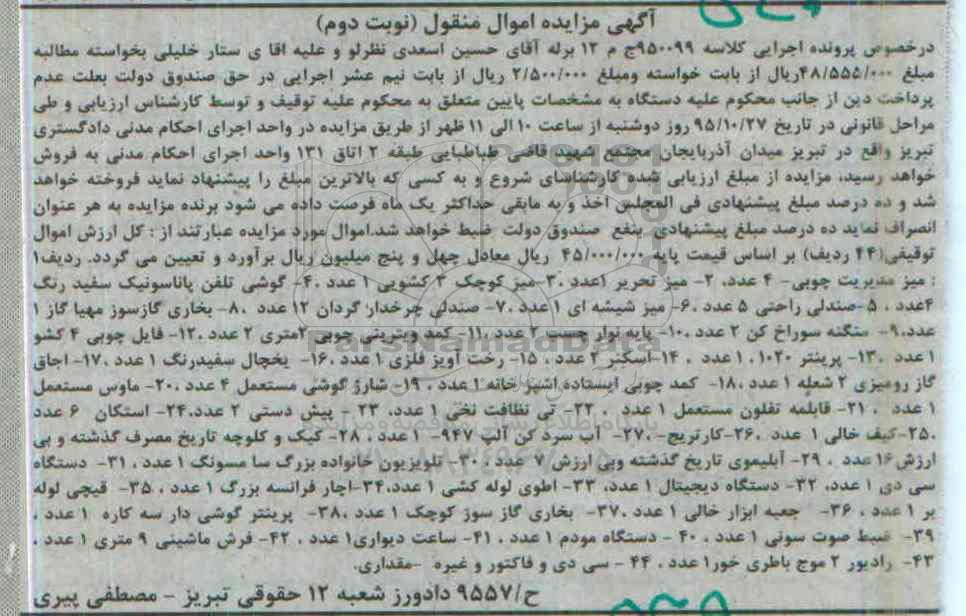 آگهی مزایده اموال منقول (نوبت دوم)
درخصوص پرونده اجرایی کلاسه ۹۵۰۰۹۹ج م ۱۲ برله آقای حسین اسعدی نظرلو و علیه اقا ی ستار خلیلی بخواسته مطالبه
مبلغ ۴۸/۵۵۵/۰۰۰ریال از بابت خواسته ومبلغ ۲/۵۰۰/۰۰۰ ریال از بابت نیم عشر اجرایی در حق صندوق دولت بعلت عدم
پرداخت دین از جانب محکوم علیه دستگاه به مشخصات پایین متعلق به محکوم علیه توقیف و توسط کارشناس ارزیابی و طی
مراحل قانونی در تاریخ ۹۵/۱۰/۲۷ روز دوشنبه از ساعت ۱۰ الی ۱۱ ظهر از طریق مزایده در واحد اجرای احکام مدنی دادگستری
تبریز واقع در تبریز میدان آذربایجان مجتمع شهید قاضی طباطبایی طبقه ۲ اتاق ۱۳۱ واحد اجرای احکام مدنی به فروش
خواهد رسید، مزایده از مبلغ ارزیابی شده کارشناسای شروع و به کسی که بالاترین مبلغ را پیشنهاد نماید فروخته خواهد
شد و ده درصد مبلغ پیشنهادی فی المجلس اخذ و به مابقی حداکثر یک ماه فرصت داده می شود برنده مزایده به هر عنوان
انصراف نماید ده درصد مبلغ پیشنهادی بنفع صندوق دولت ضبط خواهد شد.اموال مورد مزایده عبارتند از : کل ارزش اموال
توقیفی(۴۴ ردیف) بر اساس قیمت پایه ۴۵/۰۰۰/۰۰۰ ریال معادل چهل و پنج میلیون ریال برآورد و تعیین می گردد. ردیف۱
: میز مدیریت چوبی- ۴ عدد، ۲- میز تحریر ۱عدد ،۳-میز کوچک ۳ کشویی ۱ عدد ،۴- گوشی تلفن پاناسونیک سفید رنگ
۴عدد ، ۵-صندلی راحتی ۵ عدد ،۶- میز شیشه ای ۱ عدد ،۷- صندلی چرخدار گردان ۱۲ عدد ،۸- بخاری گازسوز مهیا گاز ۱
عدد،۹- منگنه سوراخ کن ۲ عدد ،۱۰- پایه نوار چسب ۲ عدد ،۱۱- کمد ویترینی چوبی ۲متری ۲ عدد ،۱۲- فایل چوبی ۴ کشو
۱ عدد ،۱۳- پرینتر ۱۰۲۰، ۱ عدد ، ۱۴-اسکنر ۲ عدد ، ۱۵- رخت آویز فلزی ۱ عدد ،۱۶- یخچال سفیدرنگ ۱ عدد ،۱۷- اجاق
گاز رومیزی ۲ شعله ۱ عدد ،۱۸- کمد چوبی ایستاده آشپز خانه ۱ عدد ، ۱۹- شارژ گوشی مستعمل ۴ عدد ،۲۰- ماوس مستعمل
۱ عدد ، ۲۱- قابلمه تفلون مستعمل ۱ عدد ، ۲۲- تی نظافت نخی ۱ عدد، ۲۳ - پیش دستی ۲ عدد،۲۴- استکان ۶ عدد
،۲۵-کیف خالی ۱ عدد ،۲۶-کارتریج-،۲۷- آب سرد کن آلپ ۹۴۷- ۱ عدد ، ۲۸- کیک و کلوچه تاریخ مصرف گذشته و بی
ارزش ۱۶ عدد ، ۲۹- آبلیموی تاریخ گذشته وبی ارزش ۷ عدد ،۳۰- تلویزیون خانواده بزرگ سا مسونگ ۱ عدد ، ۳۱- دستگاه
سی دی ۱ عدد، ۳۲- دستگاه دیجیتال ۱ عدد، ۳۳- اطوی لوله کشی ۱ عدد،۳۴-اچار فرانسه بزرگ ۱ عدد ، ۳۵- قیچی لوله
بر ۱ عدد ، ۳۶- جعبه ابزار خالی ۱ عدد ،۳۷- بخاری گاز سوز کوچک ۱ عدد ،۳۸- پرینتر گوشی دار سه کاره ۱ عدد ،
۳۹- ضبط صوت سونی ۱ عدد ، ۴۰ - دستگاه مودم ۱ عدد ، ۴۱- ساعت دیواری۱ عدد ، ۴۲- فرش ماشینی ۹ متری ۱ عدد ،
۴۳- رادیور ۲ موج باطری خور۱ عدد ، ۴۴ - سی دی و فاکتور و غیره -مقداری.
ح/۹۵۵۷ دادورز شعبه ۱۲ حقوقی تبریز - مصطفی پیری
ParsNamadData